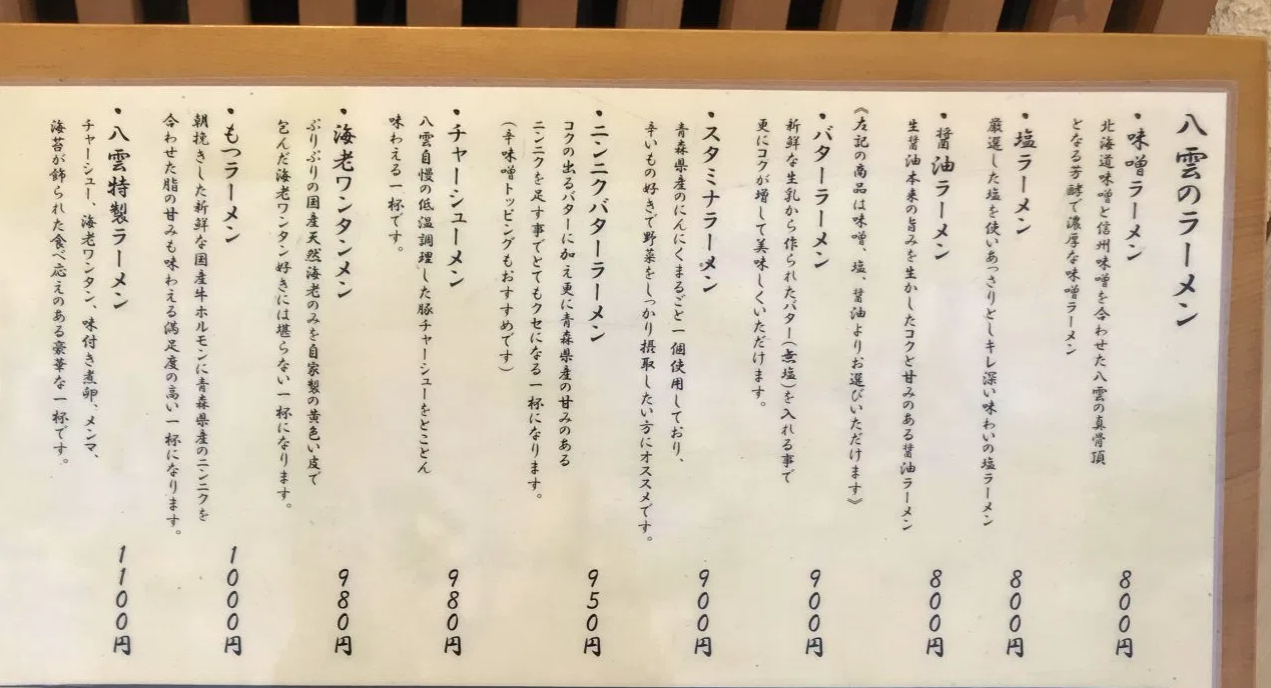 八雲のラーメン
・味噌ラーメン 800円
北海道味噌と信州味噌を合わせた八雲の真骨頂
となる芳酵で濃厚な味噌ラーメン
・塩ラーメン 800円
厳選した塩を使いあっさりとしキレ深い味わいの塩ラーメン
・醤油ラーメン 800円
生醤油本来の旨みを生かしたコクと甘みのある醤油ラーメン
《左記の商品は味噌、塩、醤油よりお選びいただけます》
・バターラーメン 900円
新鮮な生乳から作られたバター(無塩)を入れる事で
更にコクが増して美味しくいただけます。
・スタミナラーメン 900円
青森県産のにんにくまるごと一個使用しており、
辛いもの好きで野菜をしっかり摂取したい方にオススメです。
・ニンニクバターラーメン 950円
コクの出るバターに加え更に青森県産の甘みのある
ニンニクを足す事でとてもクセになる一杯になります。
(辛味噌トッピングもおすすめです)
・チャーシューメン 980円
八雲自慢の低温調理した豚チャーシューをとことん
味わえる一杯です。
・海老ワンタンメン 980円
ぷりぷりの国産天然海老のみを自家製の黄色い皮で
包んだ海老ワンタン好きには堪らない一杯になります。
・もつラーメン 1000円
朝挽きした新鮮な国産牛ホルモンに青森県産のニンニクを
合わせた脂の甘みも味わえる満足度の高い一杯になります。
・八雲特製ラーメン 1100円
チャーシュー、海老ワンタン、味付き煮卵、メンマ、
海苔が飾られた食べ応えのある豪華な一杯です。